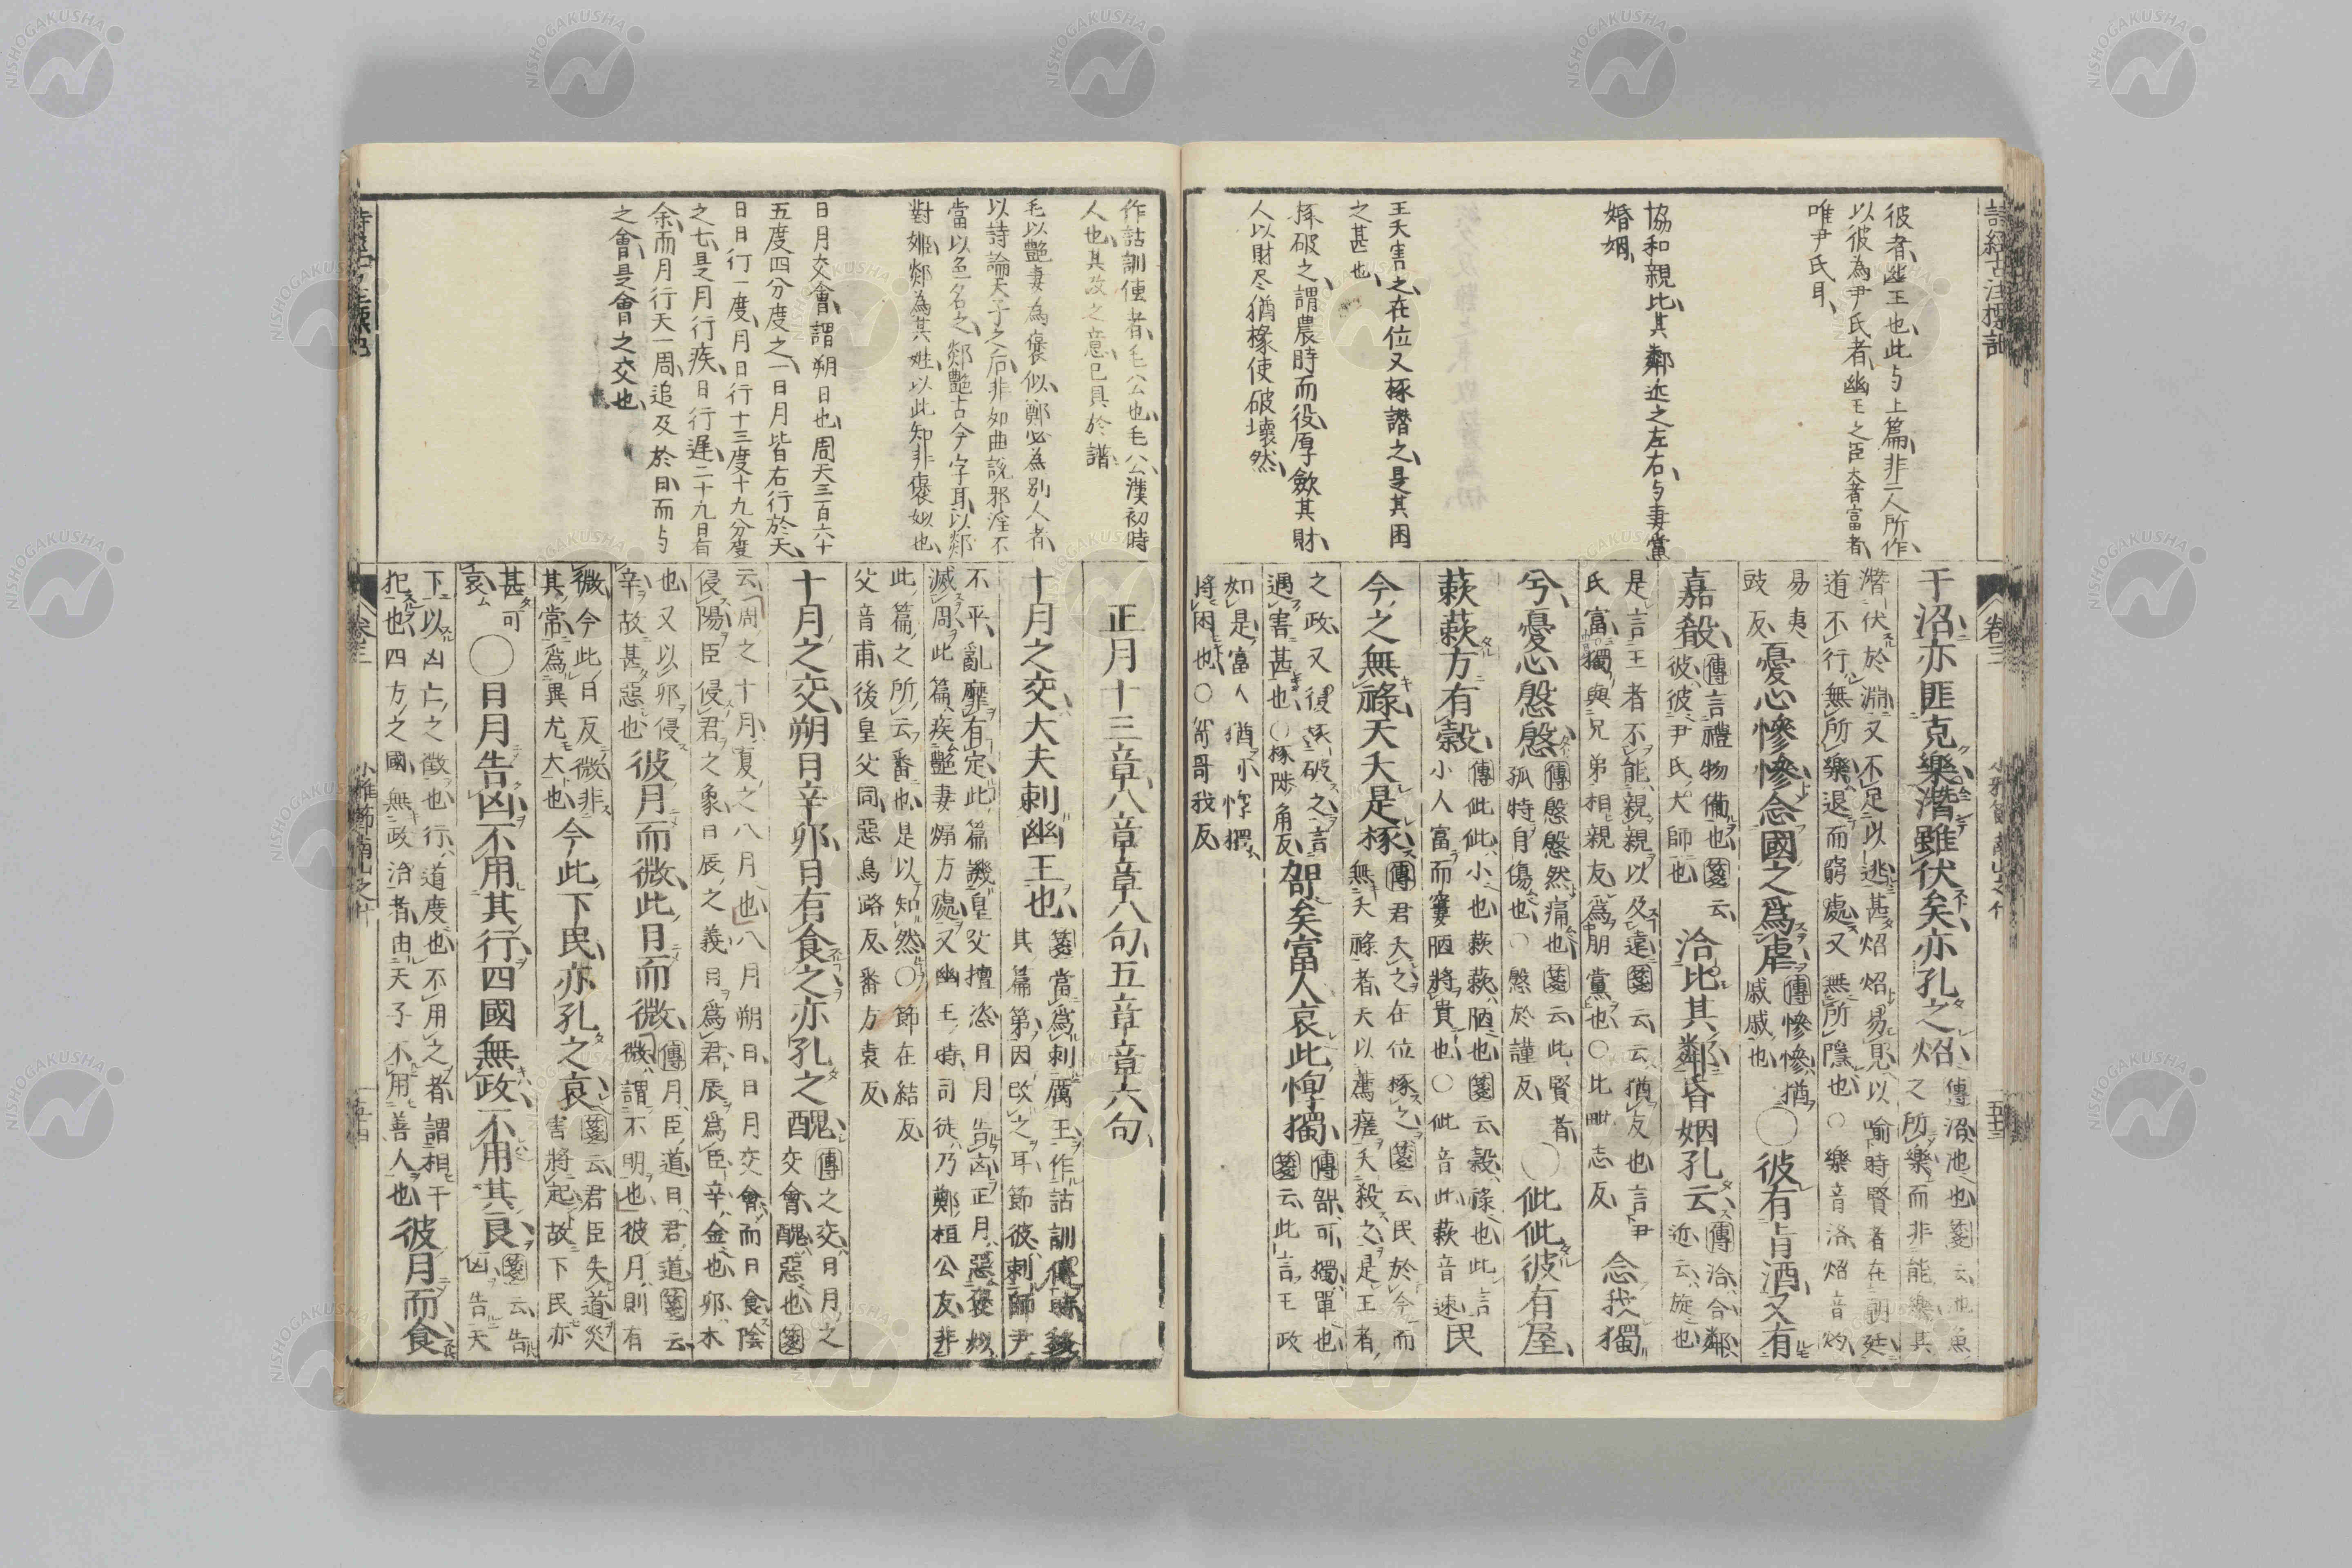 詩経古注標記
彼者幽王也此与上篇非一人所作
以彼為尹氏者幽王之臣大者富者
唯尹氏耳
協和親比其鄰近之左右与妻黨
婚姻
王夭害之在位又椓譖之是其困
之甚也
椓破之謂農時而役厚斂其財
人以財尽猶椽使破壞然
卷三
五十三
于沼亦匪克樂潛雖伏矣亦孔之炤
傳沼池也箋云池魚
之所樂而非能樂其
潛伏於淵又不足以逃甚炤炤易見以喻時賢者在朝廷
道不行無所樂退而窮處又無所隱也○樂音洛炤音灼
易夷
豉反
憂心慘慘念國之為虐
傳慘慘猶
戚戚也
○彼有旨酒又有
嘉殽
傳言禮物備也箋云
彼彼尹氏大師也
洽比其鄰昏姻孔云
傳洽合鄰
近云旋也
是言王者不能親親以及遠箋云云猶友也言尹
氏富獨與兄弟相親友為朋黨也○比毗志反
念我獨
兮憂心慇慇
傳慇慇然痛也箋云此賢者
孤特自傷也○慇於謹反
○佌佌彼有屋
蔌蔌方有穀
傳佌佌小也蔌蔌陋也箋云穀祿也此言
小人富而窶陋將貴也○佌音此蔌音速
民
今之無祿天夭是椓
傳君夭之在位椓之箋云民於今而
無天祿者天以薦瘥夭殺之是王者
之政又復椓破之言
遇害甚也○椓陟角反
哿矣富人哀此惸獨
傳哿可獨單也
箋云此言王政
如是富人猶小惸獨
將困也○哿哥我反
作詁訓傳者毛公也毛公漢初時
人也其改之意已具於譜
毛以艷妻為褒似鄭必為別人者
以詩論天子之后非如曲說邪淫不
當以色名之郯艷古今字耳以郯
對姬郯為其姓以此知非褒姒也
日月交會謂朔日也周天三百六十
五度四分度之一日月皆右行於天
日日行一度月日行十三度十九分度
之七是月行疾日行遲二十九日有
余而月行天一周追及於日而与
之會是會日之交也
正月十三章八章章八句五章章六句
十月之交大夫刺幽王也
箋當為刺厲王作詁訓傳時
其篇第因改之耳節彼刺師尹
不平亂靡有定此篇譏皇父擅恣日月告凶正月惡褒姒
滅周此篇疾艷妻煽方處又幽王時司徒乃鄭桓公友非
此篇之所云番也是以知然○節在結反
父音甫後皇父同惡烏路反番方袁反
十月之交朔日辛卯日有食之亦孔之醜
傳之交日月之
交會醜惡也箋
云周之十月夏之八月也八月朔日日月交會而日食陰
侵陽臣侵君之象日辰之義日為君辰為臣辛金也卯木
也又以卯侵
辛故甚惡也
彼月而微此日而微
傳月臣道日君道箋云
微謂不明也彼月則有
微今此日反微非
其常為異尤大也
今此下民亦孔之哀
箋云君臣失道災
害將起故下民亦
甚可
哀
○日月告凶不用其行四國無政不用其良
箋云告
凶告天
下以凶亡之徵也行道度也不用之者謂相干
犯也四方之國無政治者由天子不用善人也
彼月而食
卷三
小雅節南山之什
五十四